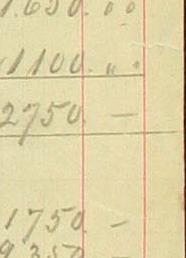 1.650. "
1100. "
2750. —
1750. —
9350. —